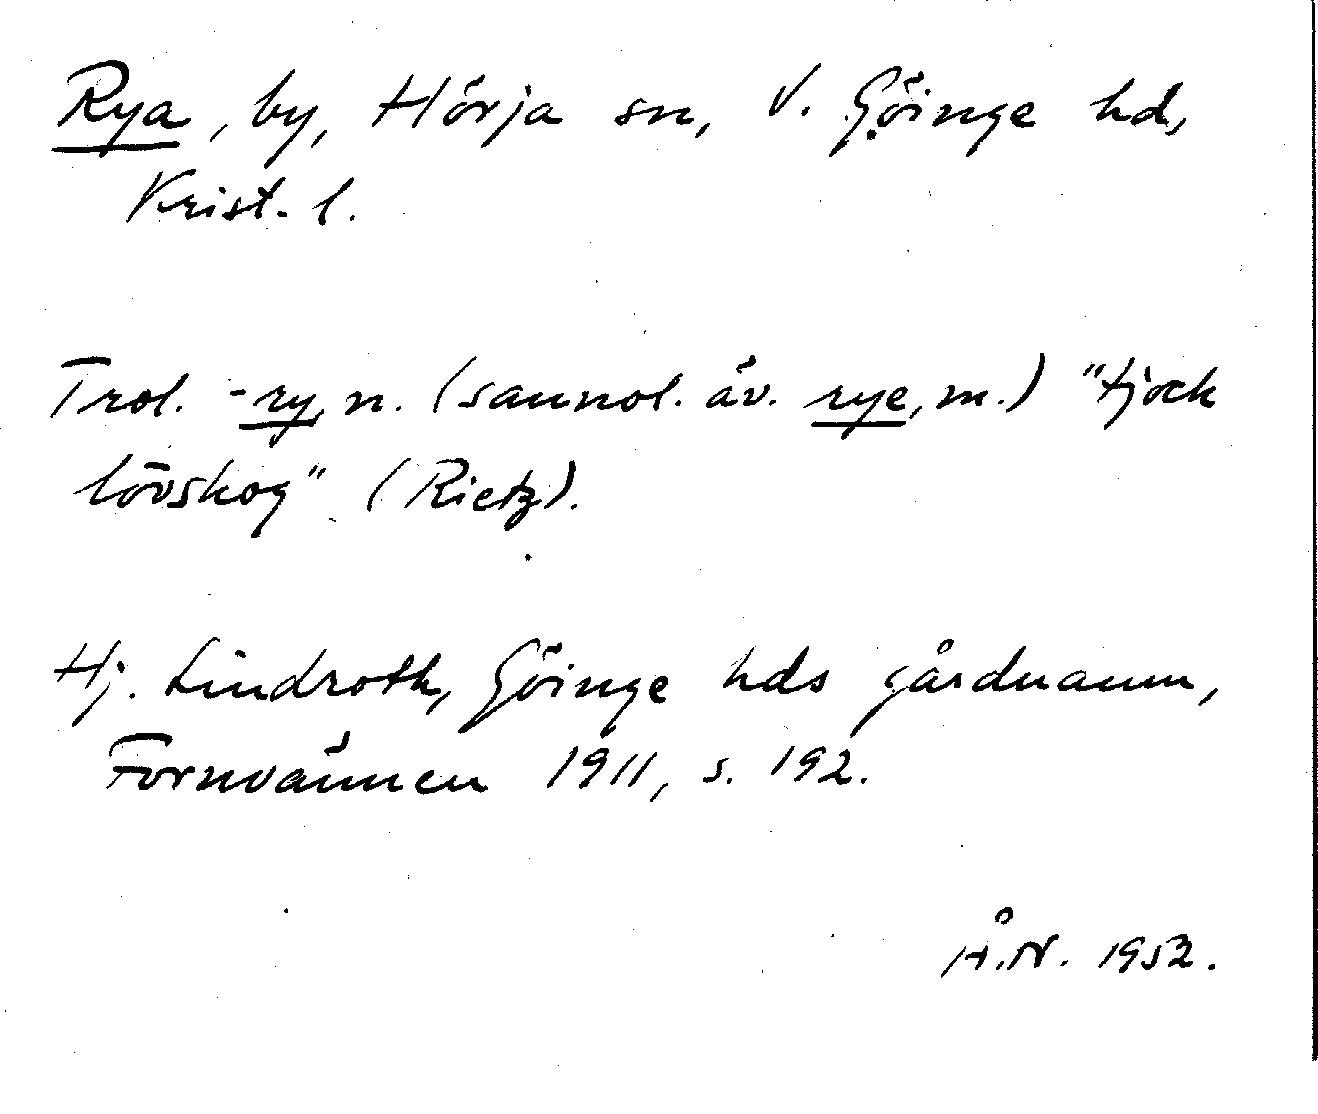 Rya, by, Hörja sn, V. Göinge hd,
Krist. l.
Trol. -ry, n. (sannol. äv. rye, m.) "tjock
lövskog" (Rietz).
Hj. Lindroth, Göinge hds gårdnamn,
Fornvännen 1911, s. 192.
Å.N. 1952.